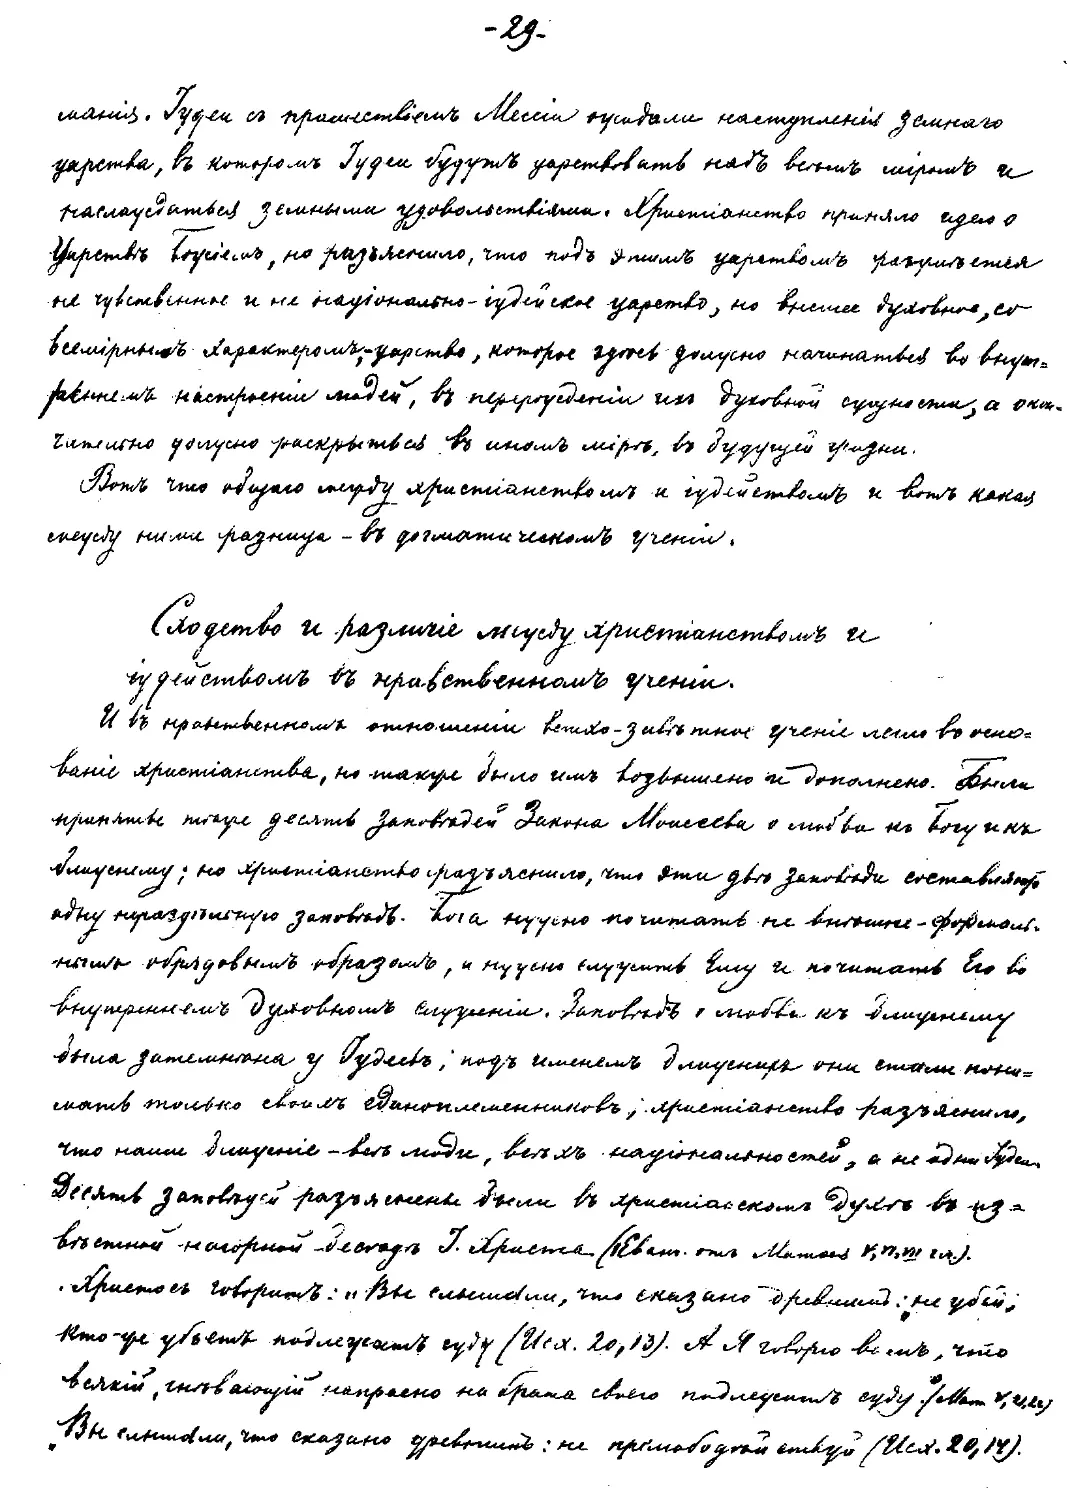 -29-
манія. Іудеи съ пришествіемъ Мессіи ожидали наступленія земнаго
царства, въ которомъ Іудеи будутъ царствовать надъ всемъ міромъ и
наслаждаться земными удовольствіями. Христіанство приняло идею о
Царствѣ Божіемъ, но разъяснило, что подъ этимъ царствомъ разумѣется
не чувственное и не національно-іудейское царство, но высшее духовное, со
всемірнымъ характеромъ,-царство, которое здѣсь должно начинаться во внут=
реннемъ настроеніи людей, въ перерожденіи ихъ духовной сущности, а окон-
чательно должно раскрыться въ иномъ мірѣ, въ будущей жизни.
Вотъ что общаго между христіанствомъ и іудействомъ и вотъ какая
между ними разница - въ догматическомъ ученіи.
Сходство и различіе между христіанствомъ и
іудействомъ въ нравственномъ ученіи.
И въ нравственномъ отношеніи ветхо-завѣтное ученіе легло во осно=
ваніе христіанства, но также было имъ возвышено и дополнено. Были
приняты также десять заповѣдей Закона Моисеева о любви къ Богу и къ
ближнему; но христіанство разъяснило, что эти двѣ заповѣди составляютъ
одну нераздѣльную заповѣдь. Бога нужно почитать не внѣшне-формаль-
нымъ обрядовымъ образомъ, а нужно служить Ему и почитать Его во
внутреннемъ духовномъ служеніи. Заповѣдь о любви къ ближнему
была затемнѣна у Іудеевъ; подъ именемъ ближнихъ они стали пони=
мать только своихъ единоплеменниковъ; христіанство разъяснило,
что наши ближніе - всѣ люди, всѣхъ національностей, а не одни Іудеи.
Десять заповѣдей разъяснены были въ христіанскомъ духѣ въ из=
вѣстной нагорной бесѣдѣ І. Христа (Еванг. отъ Матѳея V, VI, VII гл.).
Христосъ говоритъ: „Вы слышали, что сказано древнимъ: „не убей;
кто-же убьетъ подлежитъ суду (Исх. 20, 13). А Я говорю вамъ, что
всякій, гнѣвающійся напрасно на брата своего подлежитъ суду" (Мат V, 21,22)
„Вы слышали, что сказано древнимъ: не прелюбодѣйствуй (Исх. 20, 14).